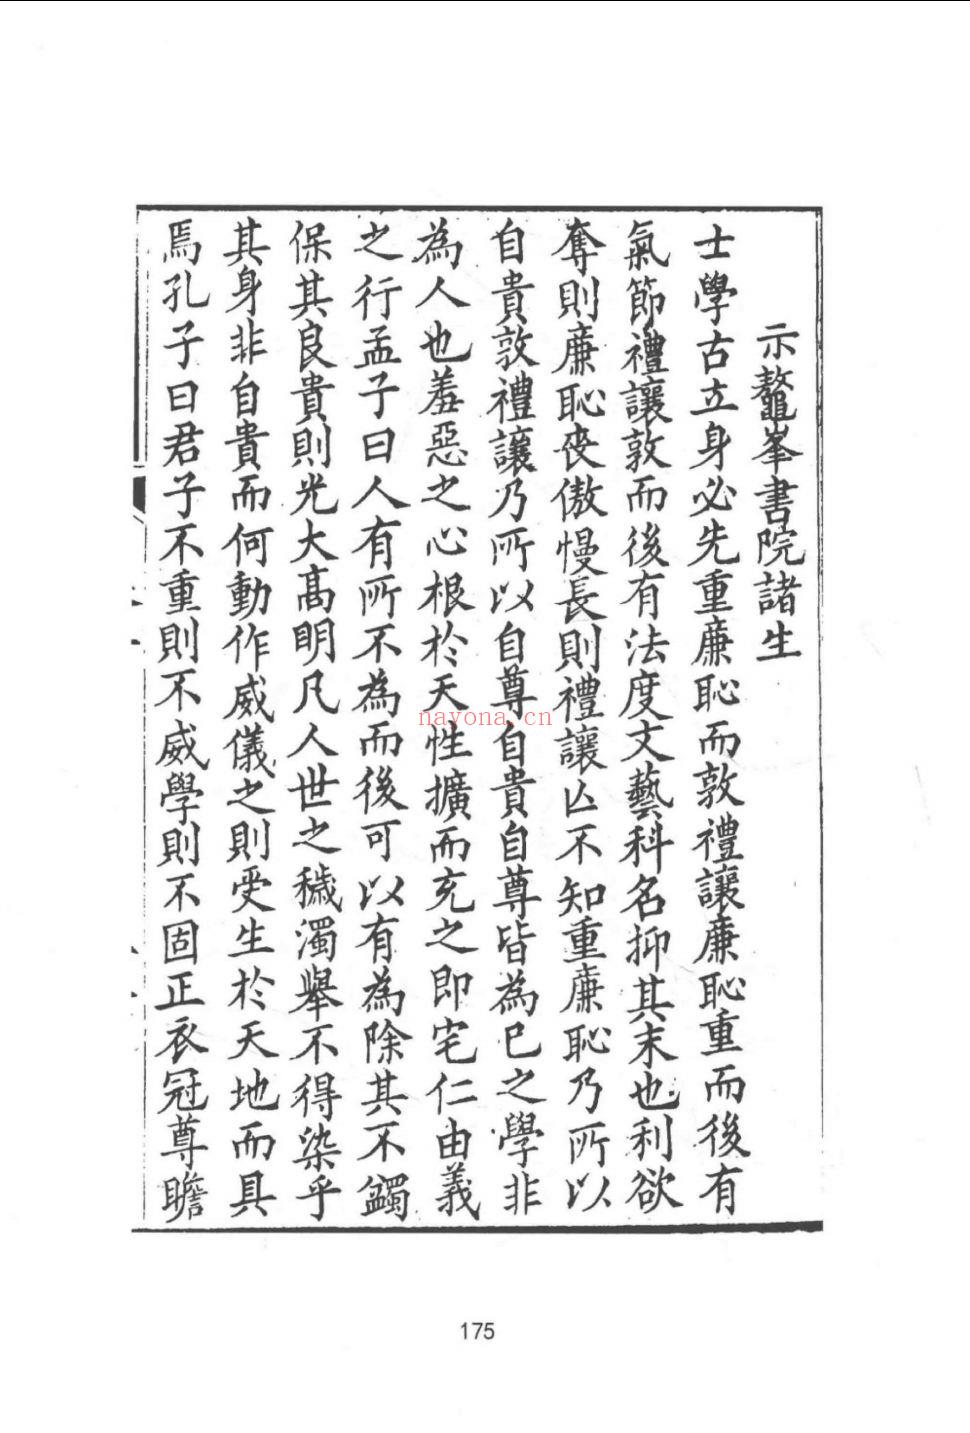 示鼇峯書院諸生
士學古立身必先重廉恥而敦禮讓廉恥重而後有
氣節禮讓敦而後有法度文藝科名抑其末也利欲
奪則廉恥喪傲慢長則禮讓亾不知重廉恥乃所以
自貴敦禮讓乃所以自尊自貴自尊皆為己之學非
為人也羞惡之心根於天性擴而充之即宅仁由義
之行孟子曰人有所不為而後可以有為除其不蠲
保其良貴則光大高明凡人世之穢濁舉不得染乎
其身非自貴而何動作威儀之則受生於天地而具
焉孔子曰君子不重則不威學則不固正衣冠尊瞻
nayona.cn
175